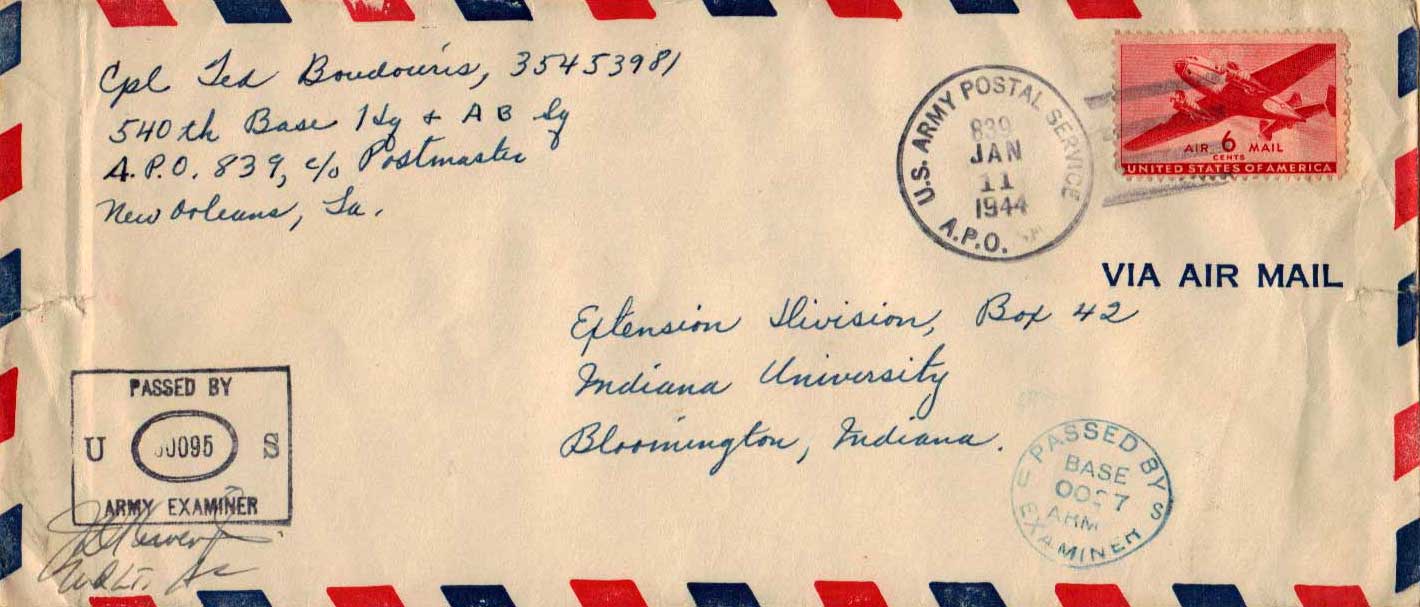 Cpl Ted Boudouris, 35453981
540th Base Hq + A B Sq
A.P.O. 839, c/o Postmaster
New Orleans, La.
U.S. ARMY POSTAL SERVICE
839
JAN
11
1944
A.P.O.
AIR 6 MAIL
CENTS
UNITED STATES OF AMERICA
VIA AIR MAIL
Extension Division, Box 42
Indiana University
Bloomington, Indiana.
PASSED BY
U S
ARMY EXAMINER
2nd Lt. Ac
PASSED BY
BASE
U S
ARM
EXAMINER